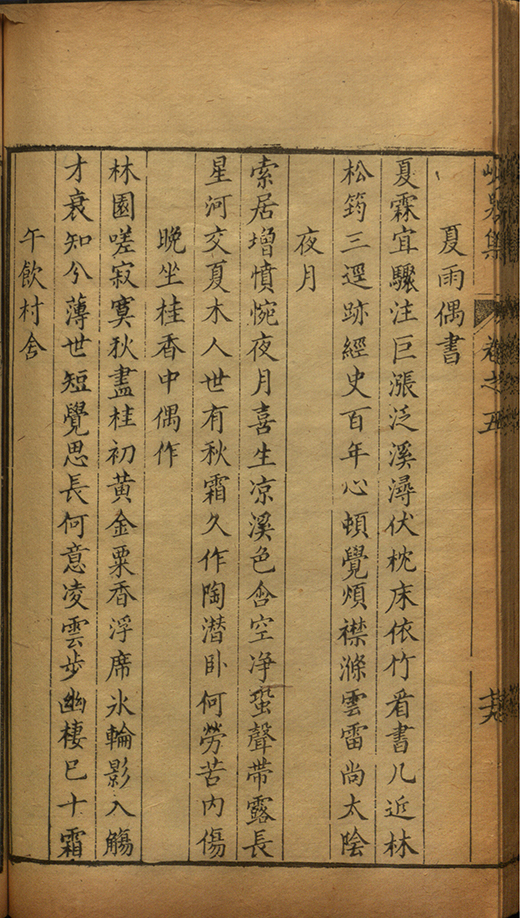 集
卷之五
夏雨偶書
夏霖宜驟注巨漲泛溪潯伏枕床依竹看書几近林
松筠三逕跡經史百年心頓覺煩襟滌雲雷尚太陰
夜月
索居增憤惋夜月喜生凉溪色含空净蛩聲帶露長
星河交夏木人世有秋霜久作陶潜卧何勞苦内傷
晚坐桂香中偶作
林園嗟寂寞秋盡桂初黄金粟香浮席氷輪影入觴
才衰知兮薄世短覺思長何意凌雲步幽棲已十霜
午飲村舍